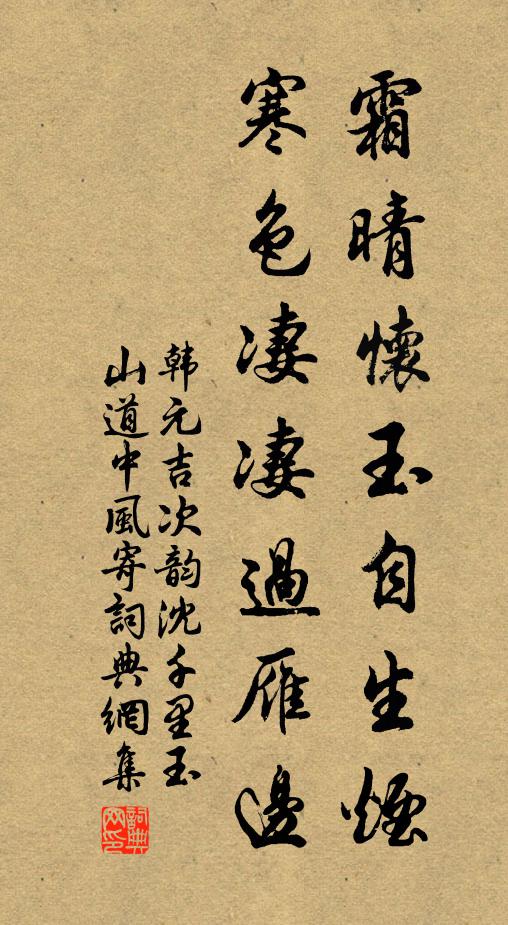 霜晴懷玉自生煙
寒色凄凄過雁邊
韩元吉次韵沈千里玉
山道中風寄詞典網集
詞典网印